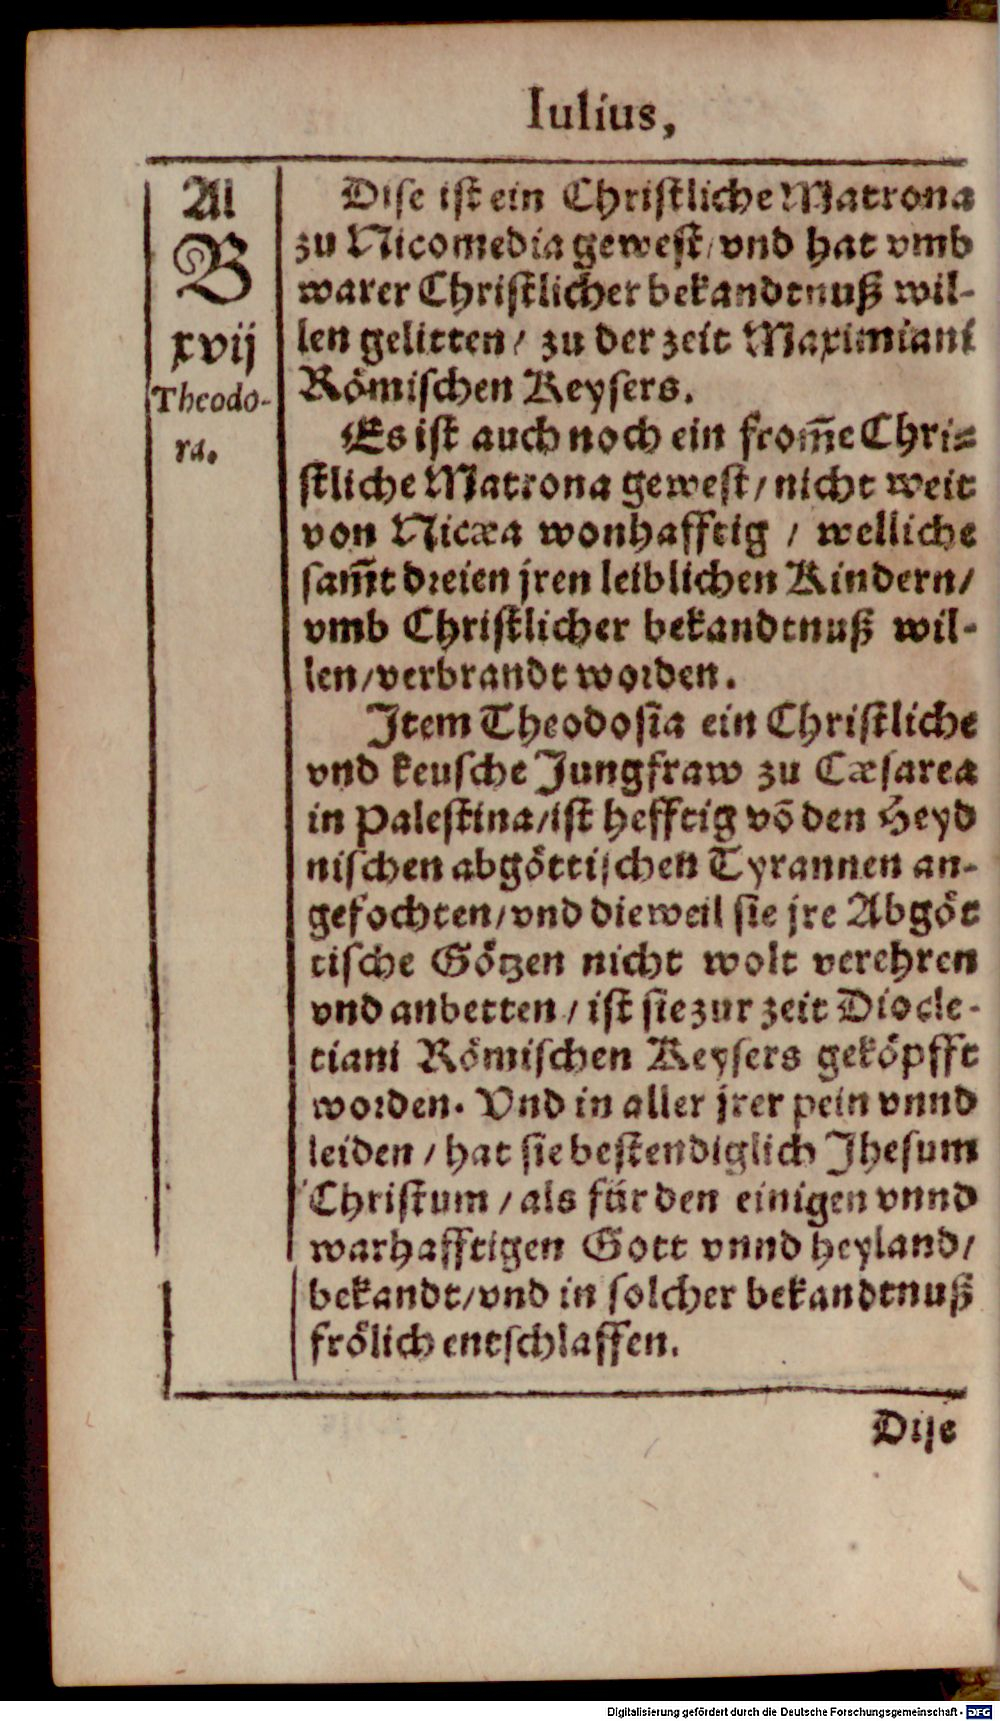 Iulius,
Al
B
xvij
Theodo-
ra.
Dise ist ein Christliche Matrona
zu Nicomedia gewest/ vnd hat vmb
warer Christlicher bekandtnuß wil-
len gelitten/ zu der zeit Maximiani
Römischen Keysers.
Es ist auch noch ein from̃e Chri-
stliche Matrona gewest/ nicht weit
von Nicæa wonhafftig / welliche
sam̃t dreien jren leiblichen Kindern/
vmb Christlicher bekandtnuß wil-
len/verbrandt worden.
Item Theodosia ein Christliche
vnd keusche Jungfraw zu Cæsarea
in Palestina/ist hefftig võ den Heyd
nischen abgöttischen Tyrannen an-
gefochten/vnd dieweil sie jre Abgöt
tische Götzen nicht wolt verehren
vnd anbetten / ist sie zur zeit Diocle-
tiani Römischen Keysers geköpfft
worden. Vnd in aller jrer pein vnnd
leiden / hat sie bestendiglich Jhesum
Christum / als für den einigen vnnd
warhafftigen Gott vnnd heyland/
bekandt/vnd in solcher bekandtnuß
frölich entschlaffen.
Dise
Digitalisierung gefördert durch die Deutsche Forschungsgemeinschaft - DFG